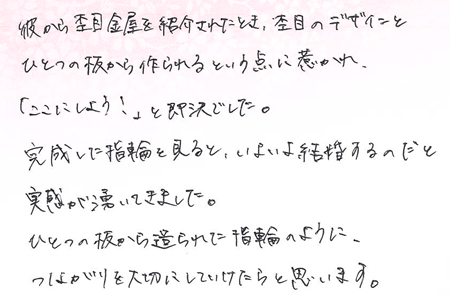 彼から杢目金屋を紹介されたとき、杢目のデザインと
ひとつの板から作られるという点に惹かれ、
「ここにしよう!」と即決でした。
完成した指輪を見ると、いよいよ結婚するのだと
実感が湧いてきました。
ひとつの板から造られた指輪のように、
つながりを大切にしていけたらと思います。